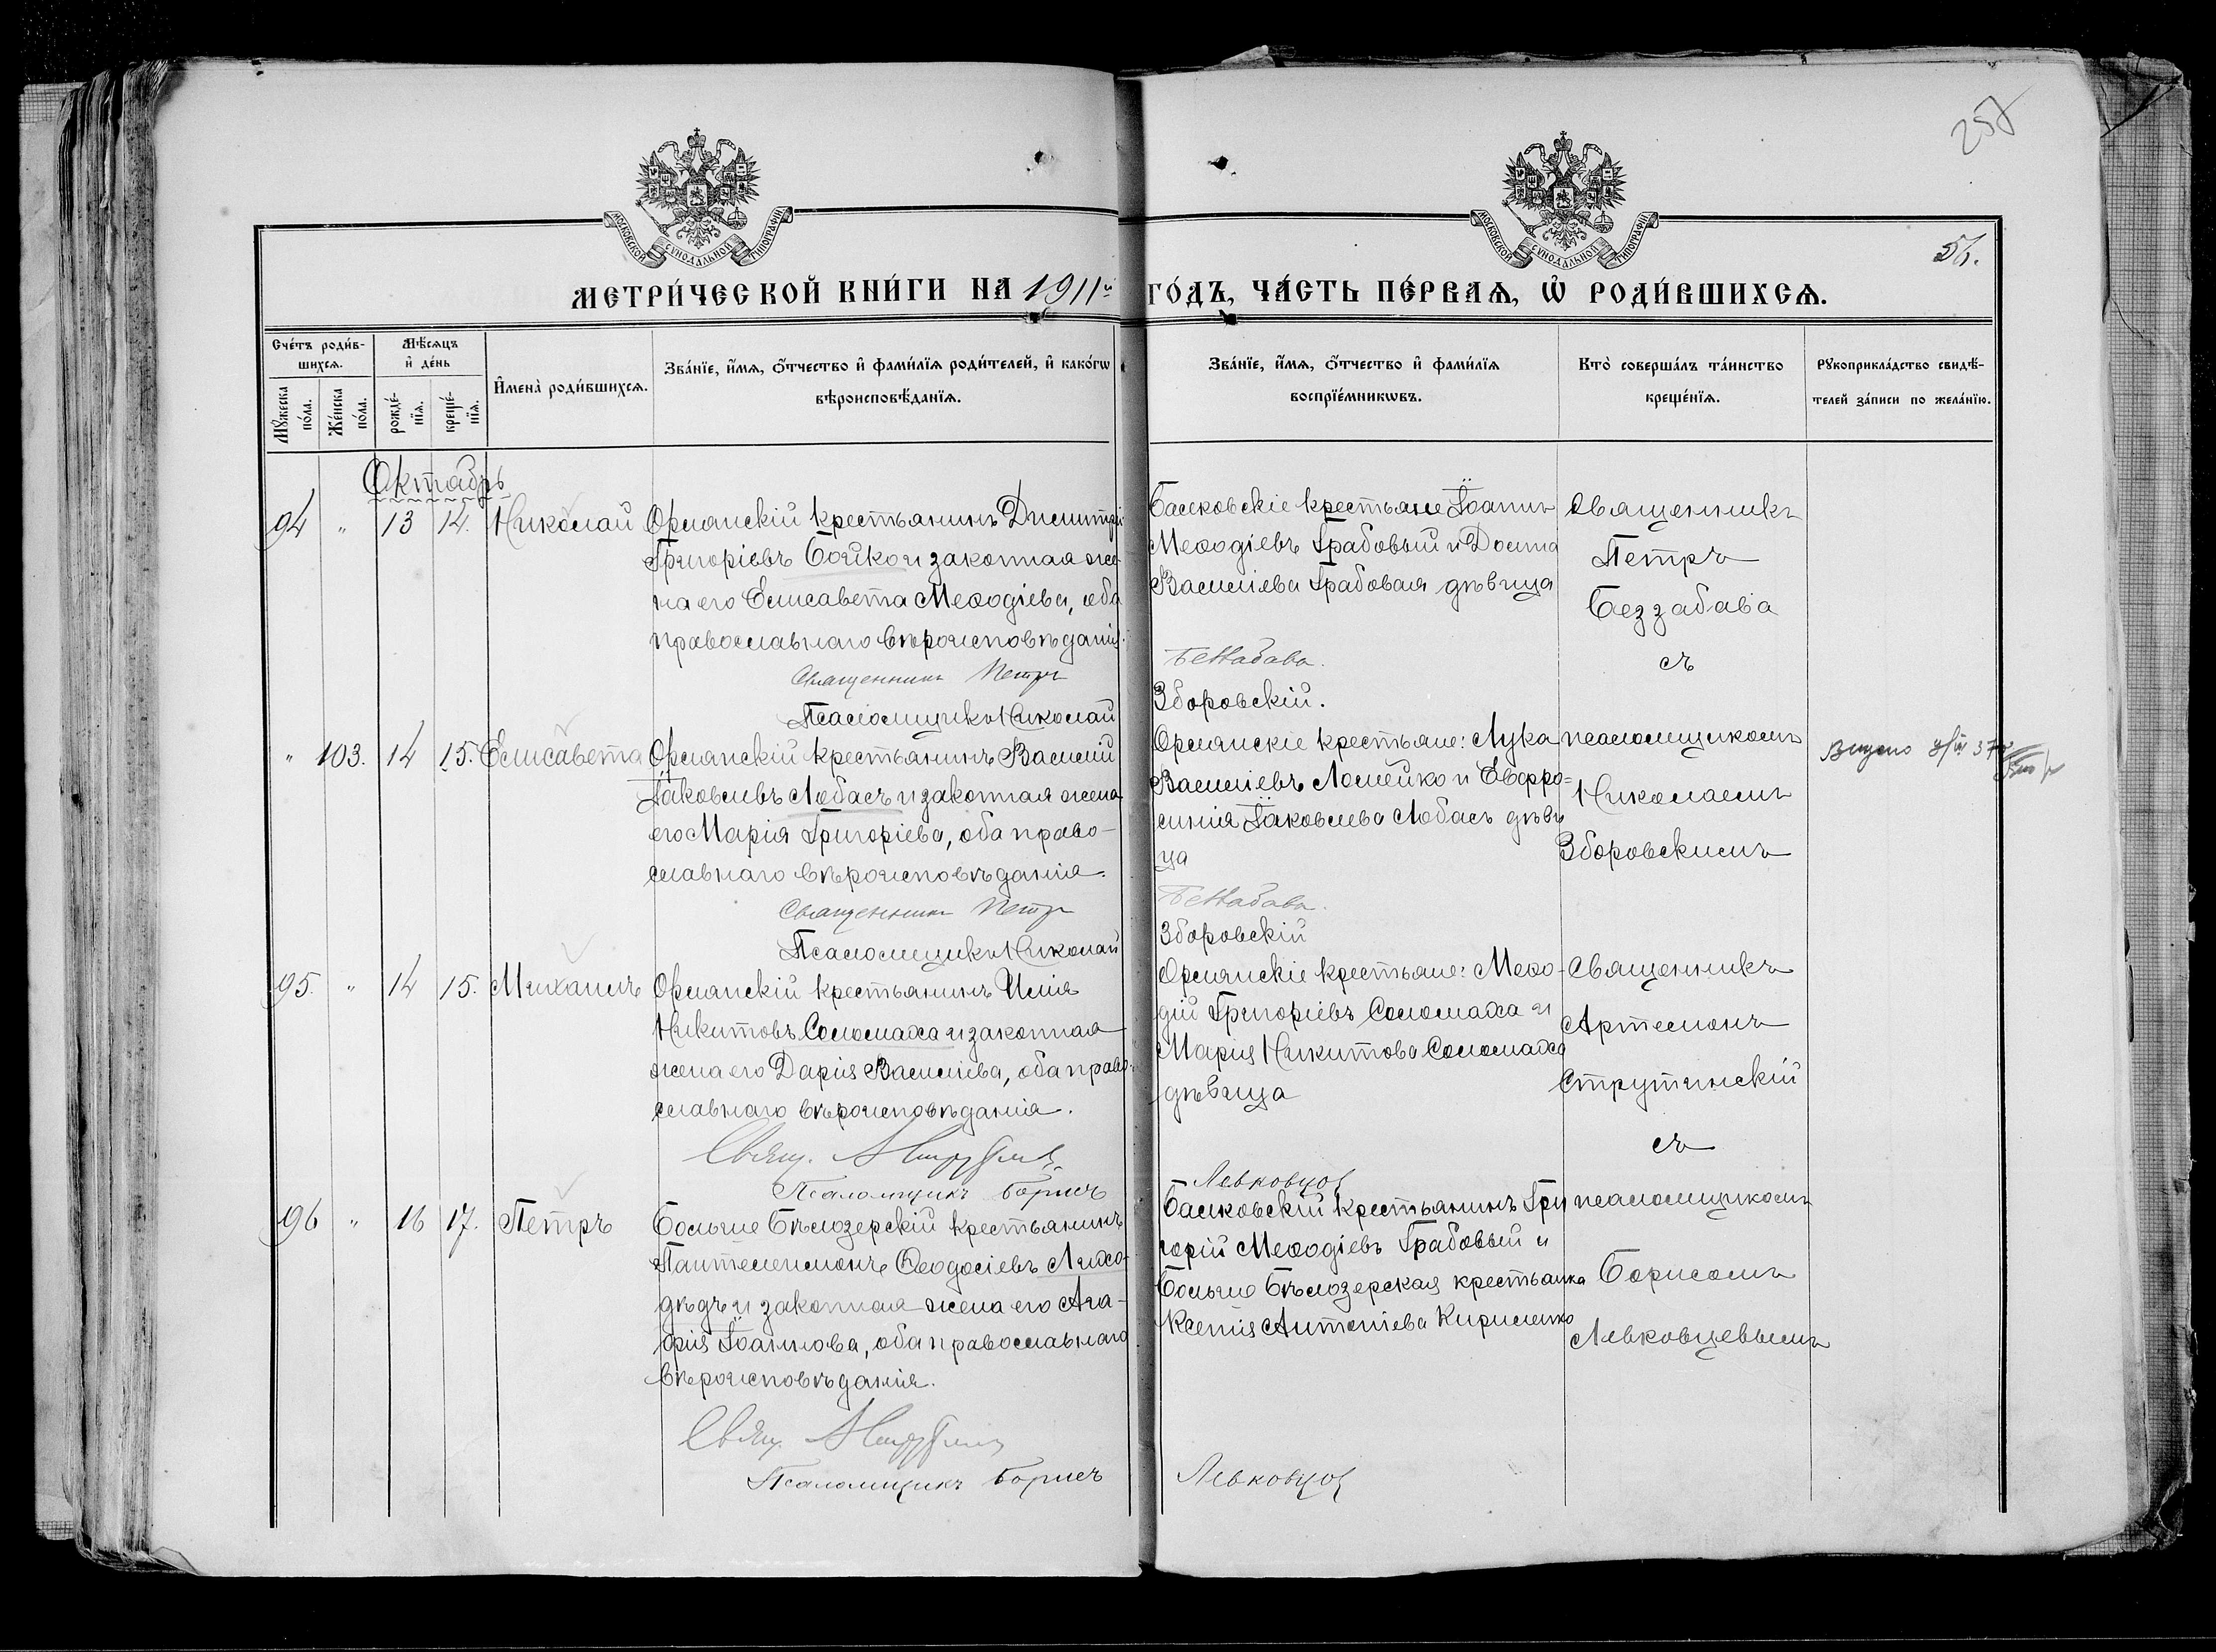 257
МОСКОВСКОЙ СѴНОДАЛЬНОЙ ТИПОГРАФІИ
МОСКОВСКОЙ СѴНОДАЛЬНОЙ ТИПОГРАФІИ
56.
МЕТРИ́ЧЕСКОЙ КНИ́ГИ НА 1911й ГО́ДЪ, ЧА́СТЬ ПЕ́РВАѦ, Ѡ҆ РОДИ́ВШИХСѦ.
Сче́тъ роди́в-
шихсѧ.
Мꙋ́жеска по́ла.
Же́нска по́ла.
Мѣ́сѧцъ
и҆ де́нь
рожде́-
нїѧ.
креще́-
нїѧ.
И҆мена̀ роди́вшихсѧ.
Зва́нїе, и҆́мѧ, ѻ҆́тчество и҆ фами́лїѧ роди́телей, и҆ како́гѡ
вѣроисповѣ́данїѧ.
Зва́нїе, и҆́мѧ, ѻ҆́тчество и҆ фами́лїѧ
воспрїе́мникѡвъ.
Кто̀ соверша́лъ та́инство
креще́нїѧ.
Рꙋкоприкла́дство свидѣ́-
телей за́писи по жела́нїю.
Октябрь
94 " 13 14. Николай
Орлянскій крестьянинъ Димитрій
Григоріевъ Бойко и законная же-
на его Елисавета Меѳодіева, оба
православнаго вѣроисповѣданія.
Священникъ Петръ
Псаломщикъ Николай
Балковскіе крестьяне Іоаннъ
Меѳодіевъ Грабовый и Домна
Василіева Грабовая дѣвица
Беззабава.
Зборовскій.
Священникъ
Петръ
Беззабава
съ
" 103. 14 15. Елисавета
Орлянскій крестьянинъ Василій
Іаковлевъ Лобасъ и законная жена
его Марія Григоріева, оба право-
славнаго вѣроисповѣданія.
Священникъ Петръ
Псаломщикъ Николай
Орлянскіе крестьяне: Лука
Василіевъ Ломейко и Евфро=
синія Іаковлева Лобасъ дѣви
ца
Беззабава.
Зборовскій
псаломщикомъ
Николаемъ
Зборовскимъ
95. " 14 15. Михаилъ
Орлянскій крестьянинъ Илія
Никитовъ Соломаха и законная
жена его Дарія Василіева, оба право-
славнаго вѣроисповѣданія.
Свящ.
Псаломщикъ Борисъ
Орлянскіе крестьяне: Меѳо-
дій Григоріевъ Соломаха и
Марія Никитова Соломаха
дѣвица
Левковцов
Священникъ
Артемонъ
Струтинскій
съ
96 " 16 17. Петръ
Больше Бѣлозерскій крестьянинъ
Пантелеимонъ Ѳеодосіевъ Лихо-
дѣдъ и законная жена его Ага-
фія Іоаннова, оба православнаго
вѣроисповѣданія.
Свящ.
Псаломщикъ Борисъ
Балковскій крестьянинъ Гри
горій Меѳодіевъ Грабовый и
Больше Бѣлозерская крестьянка
Ксенія Антоніева Кириленко
Левковцов
псаломщикомъ
Борисомъ
Левковцевымъ